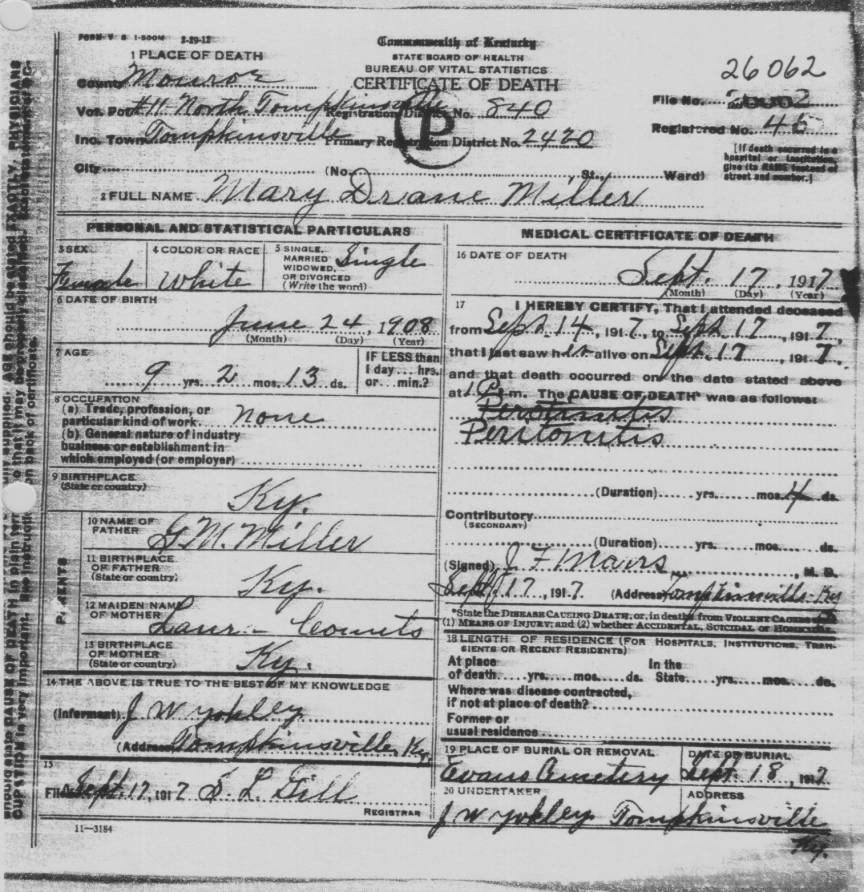 FORM V. S. 1-500M 2-29-12
Commonwealth of Kentucky
STATE BOARD OF HEALTH
BUREAU OF VITAL STATISTICS
CERTIFICATE OF DEATH
1 PLACE OF DEATH
County Monroe
Vot. Pct #11 North Tompkinsville Registration District No. 840
Inc. Town Tompkinsville Primary Registration District No. 2420
City (No. St. Ward)
P
26062
File No.
Registered No. 45
[If death occurred in a hospital or institution, give its NAME instead of street and number.]
2 FULL NAME Mary Drane Miller
PERSONAL AND STATISTICAL PARTICULARS
3 SEX Female
4 COLOR OR RACE White
5 SINGLE, MARRIED WIDOWED, OR DIVORCED (Write the word) Single
6 DATE OF BIRTH
June 24, 1908
(Month) (Day) (Year)
7 AGE
9 yrs. 2 mos. 13 ds.
IF LESS than 1 day... hrs. or... min.?
8 OCCUPATION
(a) Trade, profession, or particular kind of work none
(b) General nature of industry business or establishment in which employed (or employer)
9 BIRTHPLACE
(State or country) Ky.
PARENTS
10 NAME OF FATHER G. M. Miller
11 BIRTHPLACE OF FATHER (State or country) Ky.
12 MAIDEN NAME OF MOTHER
13 BIRTHPLACE OF MOTHER (State or country) Ky.
14 THE ABOVE IS TRUE TO THE BEST OF MY KNOWLEDGE
(Informant) J W Yokley
(Address) Tompkinsville Ky.
15
Filed Sept. 17, 1917 S. L. Gill
REGISTRAR
11-3184
MEDICAL CERTIFICATE OF DEATH
16 DATE OF DEATH
Sept. 17, 1917
(Month) (Day) (Year)
17 I HEREBY CERTIFY, That I attended deceased
from Sept 14, 1917, to Sept 17, 1917,
that I last saw her alive on Sept. 17, 1917,
and that death occurred on the date stated above
at 1 P. m. The CAUSE OF DEATH* was as follows:
Peritonitis
(Duration) yrs. mos. 4 ds.
Contributory
(SECONDARY)
(Duration) yrs. mos. ds.
(Signed) J F Marrs, M. D.
Sept 17, 1917 (Address) Tompkinsville Ky
*State the DISEASE CAUSING DEATH, or, in deaths from VIOLENT CAUSES
(1) MEANS OF INJURY; and (2) whether ACCIDENTAL, SUICIDAL or HOMICIDAL
18 LENGTH OF RESIDENCE (FOR HOSPITALS, INSTITUTIONS, TRANSIENTS OR RECENT RESIDENTS)
At place of death yrs. mos. ds. In the State yrs. mos. ds.
Where was disease contracted, if not at place of death?
Former or usual residence
19 PLACE OF BURIAL OR REMOVAL Evans Cemetery
DATE OF BURIAL Sept. 18, 1917
20 UNDERTAKER J W Yokley
ADDRESS Tompkinsville Ky.